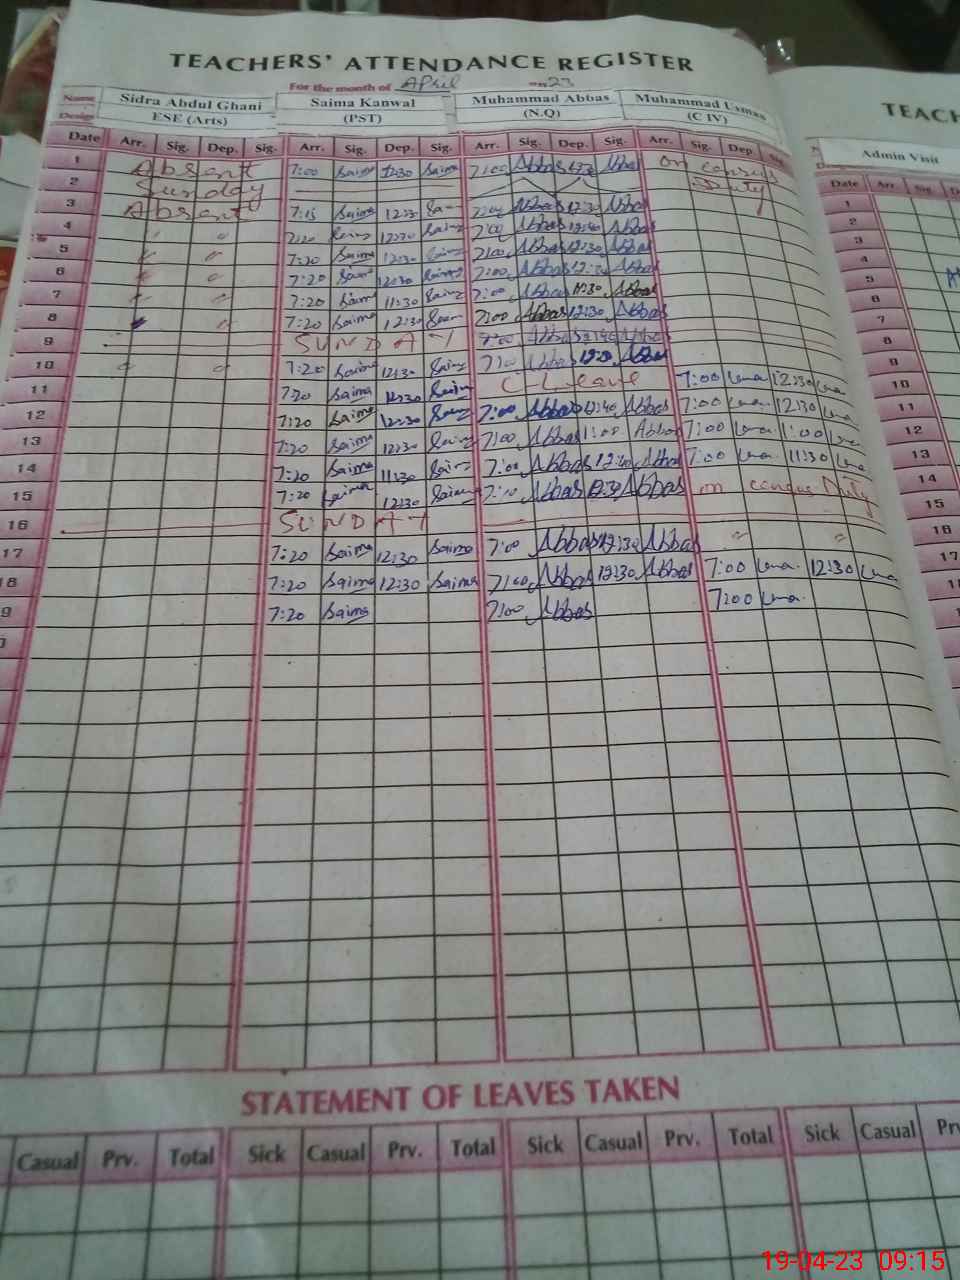 TEACHERS' ATTENDANCE REGISTER
For the month of April 23
Name Sidra Abdul Ghani Saima Kanwal Muhammad Abbas Muhammad Usman
Design ESE (Arts) (PST) (N.Q) (C IV)
Date Arr. Sig. Dep. Sig. Arr. Sig. Dep. Sig. Arr. Sig. Dep. Sig. Arr. Sig. Dep.
1 Absent 7:00 Saima 12:30 Saima 7:00 Abbas Abbas on census
2 Sunday Duty
3 Absent 7:15 Saima Abbas 12:30 Abbas
4 " " 7:20 Saima 7:00 Abbas 12:40 Abbas
5 " " 7:20 Saima 12:30 7:00 Abbas 12:30 Abbas
6 " " 7:20 Saima 12:30 Saima 7:00 Abbas Abbas
7 " " 7:20 Saima 11:30 Saima 7:00 Abbas 11:30 Abbas
8 " 7:20 Saima 12:30 7:00 Abbas 12:30 Abbas
9 SUNDAY
10 " " 7:20 Saima 12:30 Saima 7:00 Abbas Abbas
11 7:20 Saima 12:30 Saima C-Leave 7:00 12:30
12 7:20 Saima 12:30 7:00 Abbas 12:40 Abbas 7:00 12:30
13 7:20 Saima 12:30 Saima 7:00 Abbas 1:00 Abbas 7:00 1:00
14 7:20 Saima 11:30 Saima 7:00 Abbas Abbas 7:00 11:30
15 7:20 Saima 12:30 Saima Abbas Abbas on census Duty
16 SUNDAY
17 7:20 Saima 12:30 Saima 7:00 Abbas 12:30 Abbas " "
18 7:20 Saima 12:30 Saima 7:00 Abbas 12:30 Abbas 7:00 12:30
9 7:20 Saima 7:00 Abbas 7:00
STATEMENT OF LEAVES TAKEN
Casual Prv. Total Sick Casual Prv. Total Sick Casual Prv. Total Sick Casual Prv
TEACH
Admin Visit
Date Arr Sig.
1
2
3
4
5
6
7
8
9
10
11
12
13
14
15
16
17
19-04-23 09:15